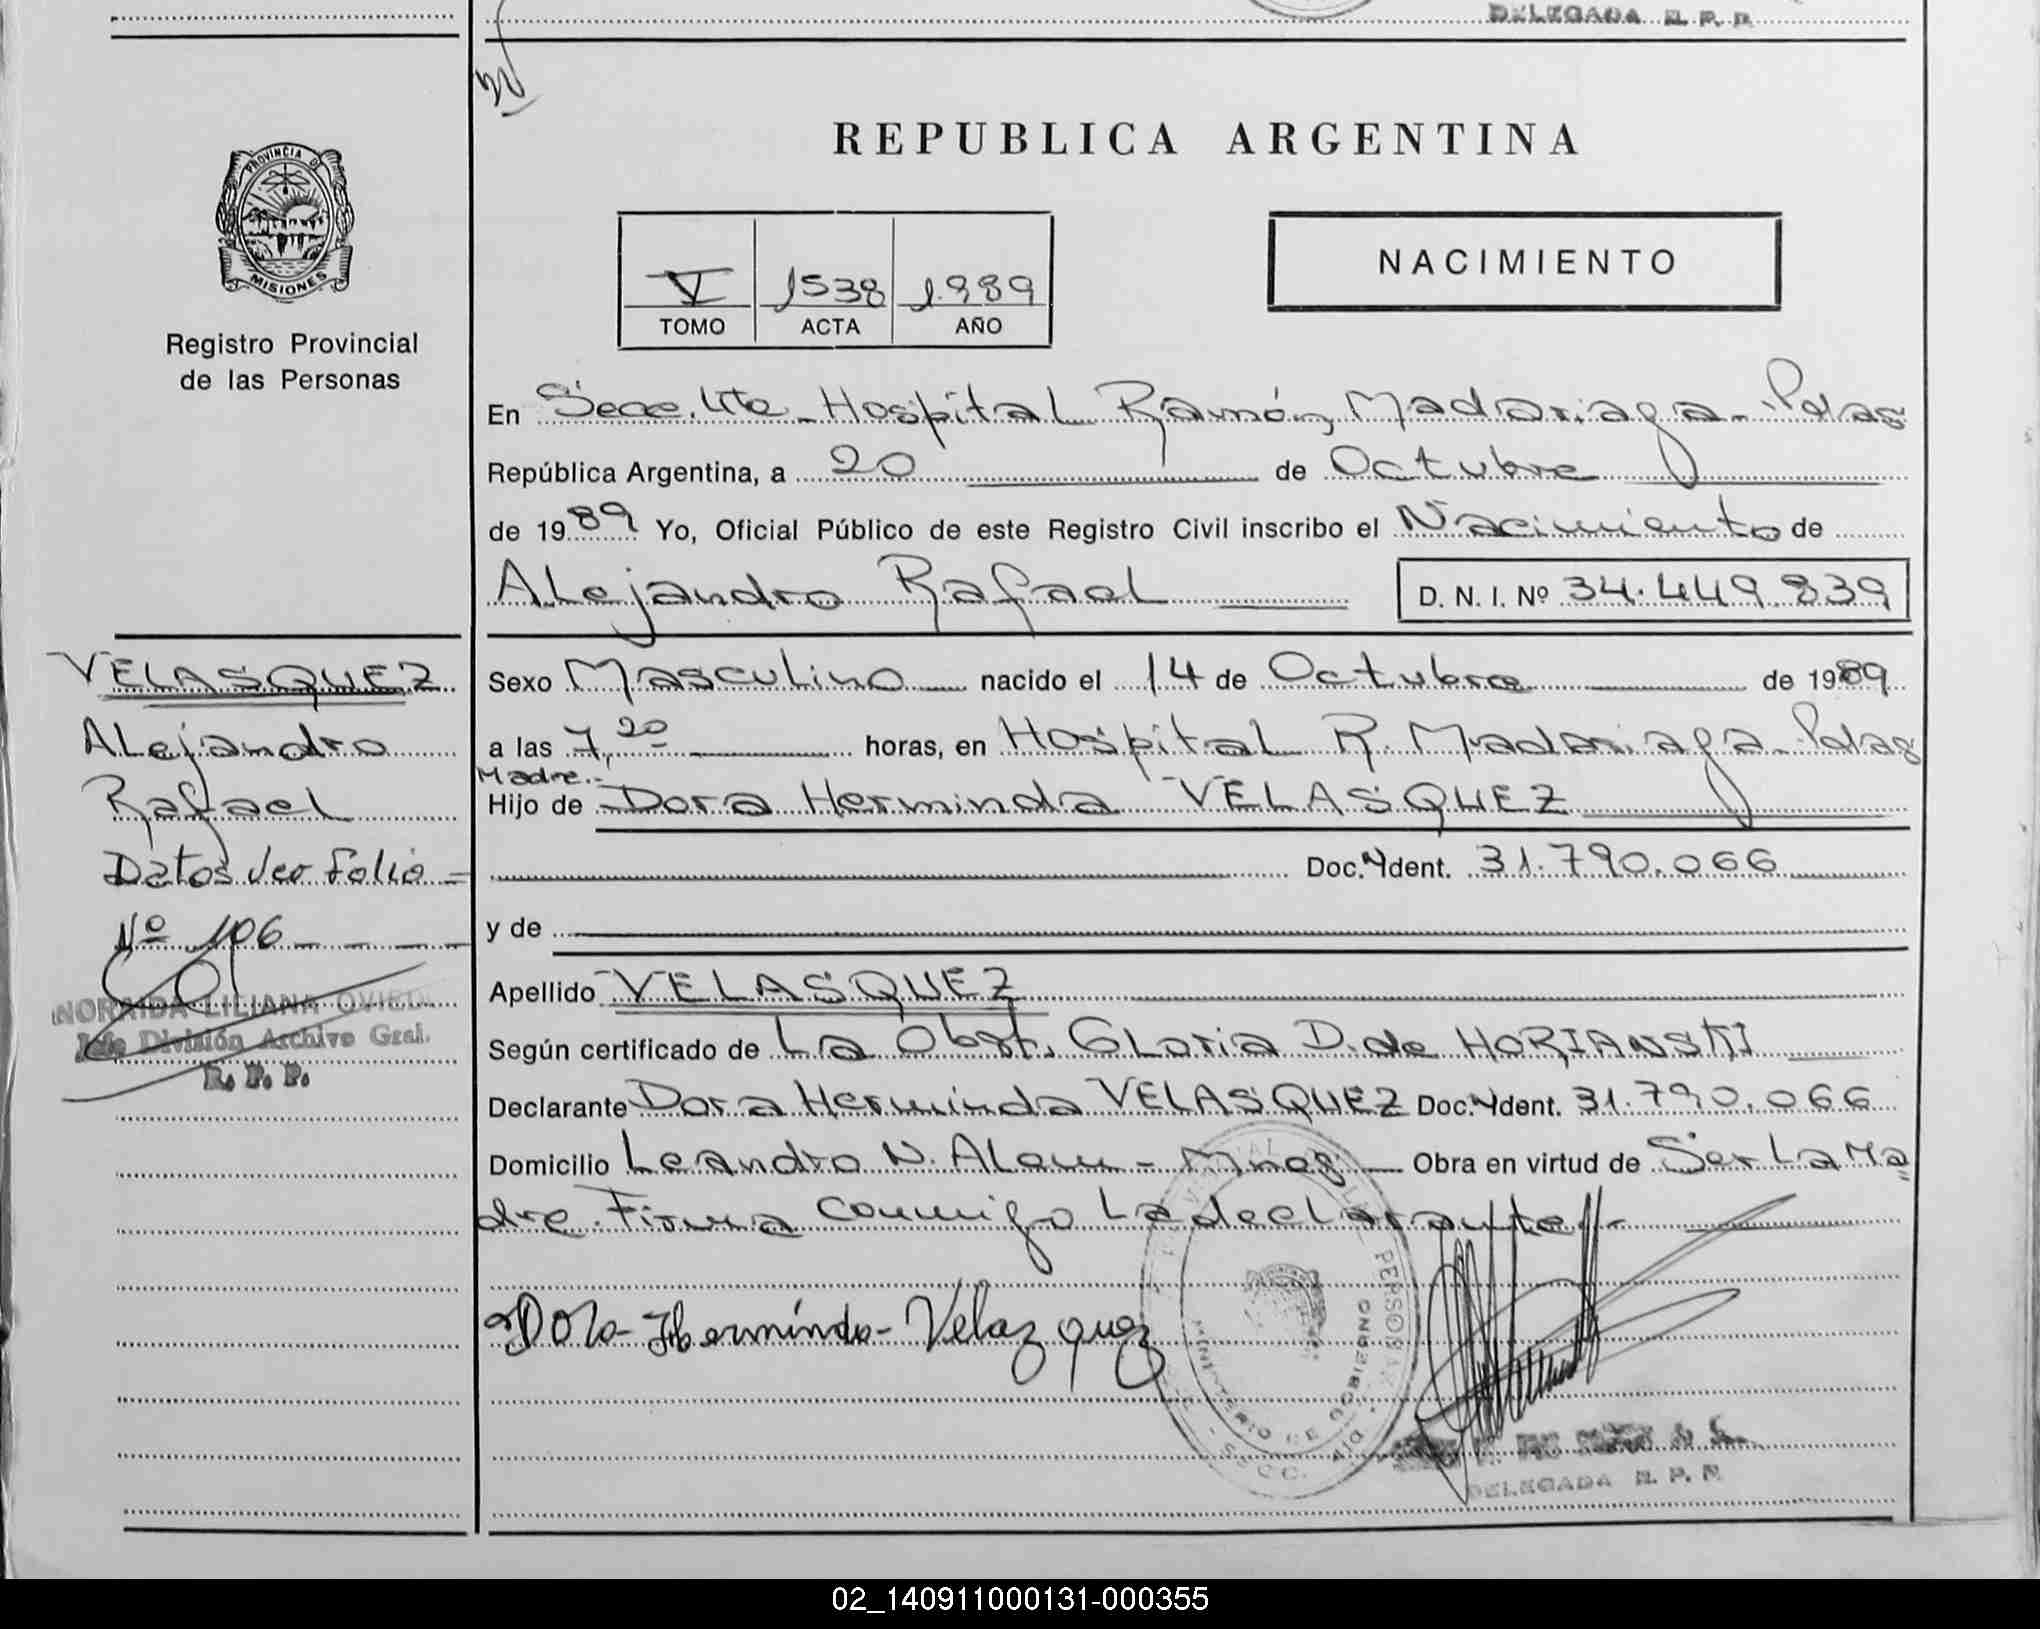 DELEGADA R. P. P.
REPUBLICA ARGENTINA
PROVINCIA DE
MISIONES
Registro Provincial
de las Personas
V 1538 1.989
TOMO ACTA AÑO
NACIMIENTO
En Secc. 4ta - Hospital Ramón Madariaga - Pdas
República Argentina, a 20 de Octubre
de 1989 Yo, Oficial Público de este Registro Civil inscribo el Nacimiento de
Alejandro Rafael D. N. I. Nº 34.449.839
VELASQUEZ
Alejandro
Rafael
Datos ver folio =
Nº 106
NORAIDA LILIANA OVIEDO
Jefe División Archivo Gral.
R. P. P.
Sexo Masculino nacido el 14 de Octubre de 1989
a las 7,20 horas, en Hospital R. Madariaga - Pdas
Madre.-
Hijo de Dora Herminda VELASQUEZ
Doc. Ydent. 31.790.066
y de
Apellido VELASQUEZ
Según certificado de La Obst. Gloria D. de HORIANSKI
Declarante Dora Herminda VELASQUEZ Doc. Ydent. 31.790.066
Domicilio Leandro N. Alem - Mnes Obra en virtud de Ser La Ma
dre. Firma conmigo La declarante.-
Dora Herminda Velazquez
MINISTERIO DE GOBIERNO
DELEGADA R. P. P.
02_140911000131-000355